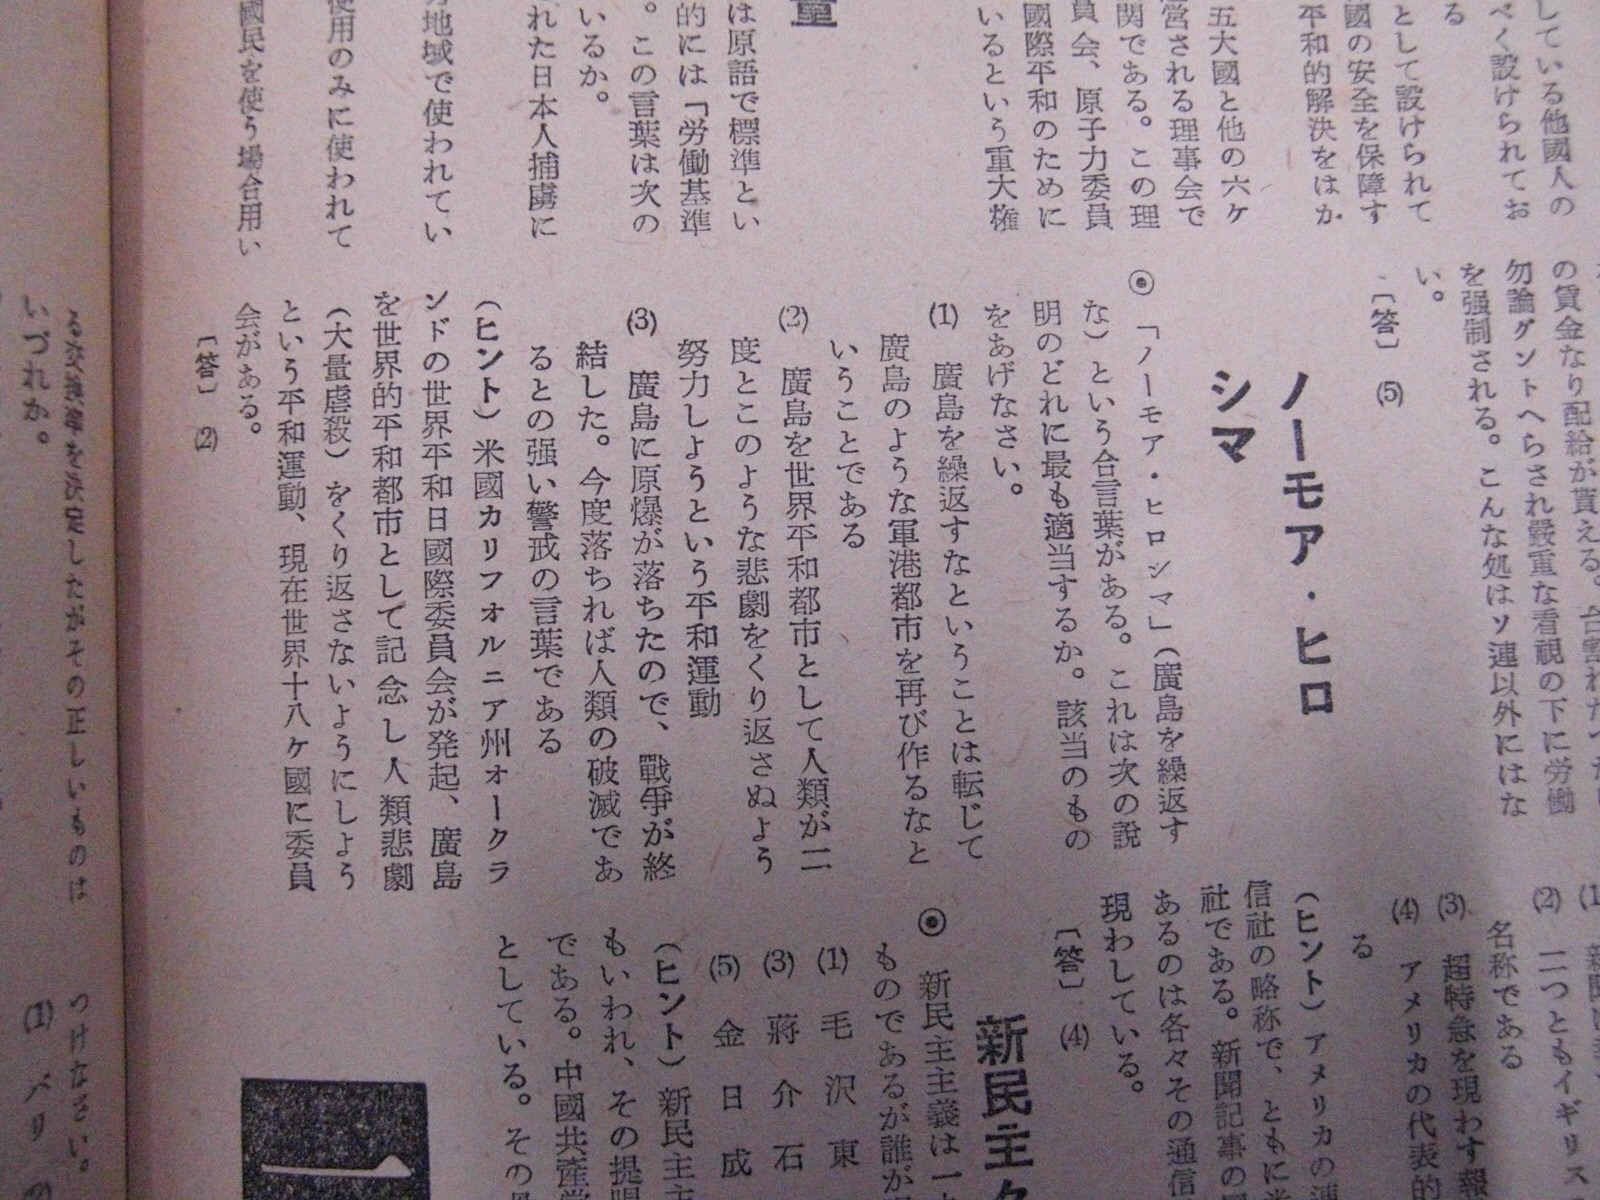 している他國人の
べく設けられてお
る
として設けられて
國の安全を保障す
平和的解決をはか
五大國と他の六ケ
営される理事会で
関である。この理
員会、原子力委員
國際平和のために
いるという重大権
は原語で標準とい
的には「労働基準
。この言葉は次の
いるか。
れた日本人捕虜に
地域で使われてい
使用のみに使われて
國民を使う場合用い
の賃金なり配給が貰える。
勿論グントへらされ嚴重な看視の下に労働
を强制される。こんな処はソ連以外にはな
い。
〔答〕 (5)
ノーモア・ヒロ
シマ
◉ 「ノーモア・ヒロシマ」(廣島を繰返す
な)という合言葉がある。これは次の説
明のどれに最も適当するか。該当のもの
をあげなさい。
(1) 廣島を繰返すなということは転じて
廣島のような軍港都市を再び作るなと
いうことである
(2) 廣島を世界平和都市として人類が二
度とこのような悲劇をくり返さぬよう
努力しようという平和運動
(3) 廣島に原爆が落ちたので、戰爭が終
結した。今度落ちれば人類の破滅であ
るとの强い警戒の言葉である
(ヒント)米國カリフォルニア州オークラ
ンドの世界平和日國際委員会が発起、廣島
を世界的平和都市として記念し人類悲劇
(大量虐殺)をくり返さないようにしよう
という平和運動、現在世界十八ケ國に委員
会がある。
〔答〕 (2)
(2) 二つともイギリス
名称である
(3) 超特急を現わす
(4) アメリカの代表的
る
(ヒント)アメリカの
信社の略称で、ともに
社である。新聞記事の
あるのは各々その通信
現わしている。
〔答〕 (4)
新民主
◉ 新民主主義は一
ものであるが誰が
(1) 毛沢東
(3) 蔣介石
(5) 金日成
(ヒント)新民主主
もいわれ、その提唱
である。中國共産党
としている。その
る交換率を決定したがその正しいものは
いづれか。
つけなさい。
(1) メリ